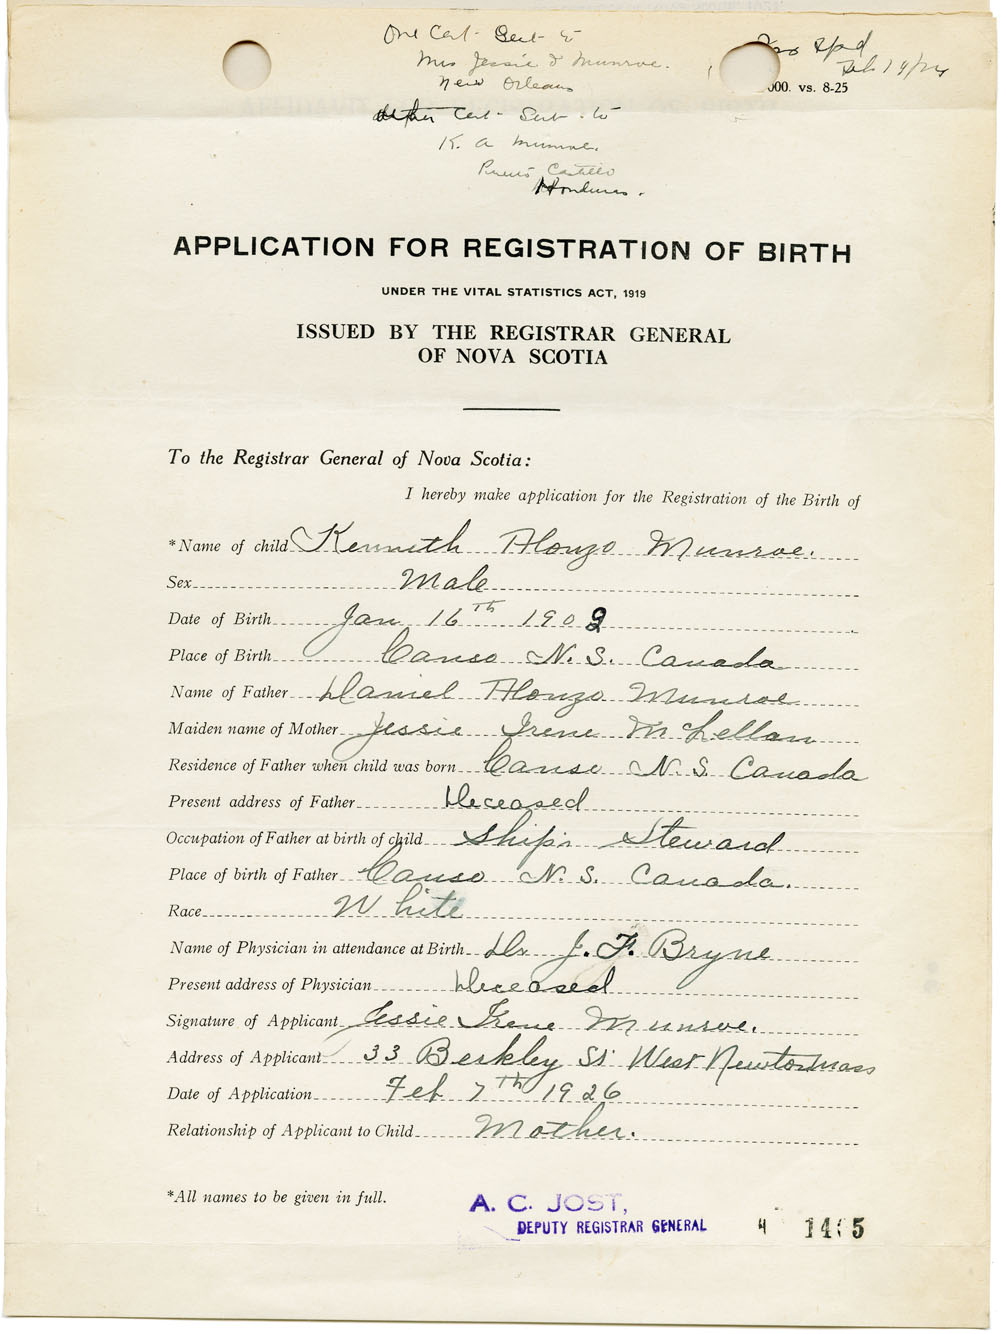 One Cert- Sent to
Mrs Jessie I Munroe.
New Orleans
Feb 19/26
000. vs. 8-25
other Cert- Sent- to
K. A Munroe.
Puerto Castillo
Honduras.
APPLICATION FOR REGISTRATION OF BIRTH
UNDER THE VITAL STATISTICS ACT, 1919
ISSUED BY THE REGISTRAR GENERAL
OF NOVA SCOTIA
To the Registrar General of Nova Scotia:
I hereby make application for the Registration of the Birth of
*Name of child Kenneth Alonzo Munroe.
Sex Male
Date of Birth Jan 16th 1902
Place of Birth Canso N. S. Canada
Name of Father Daniel Alonzo Munroe
Maiden name of Mother Jessie Irene McLellan
Residence of Father when child was born Canso N. S. Canada
Present address of Father Deceased
Occupation of Father at birth of child Ship's Steward
Place of birth of Father Canso N. S. Canada.
Race White
Name of Physician in attendance at Birth Dr J. F. Bryne
Present address of Physician Deceased
Signature of Applicant Jessie Irene Munroe.
Address of Applicant 33 Berkley St West Newton Mass
Date of Application Feb 7th 1926
Relationship of Applicant to Child Mother.
*All names to be given in full.
A. C. JOST,
DEPUTY REGISTRAR GENERAL